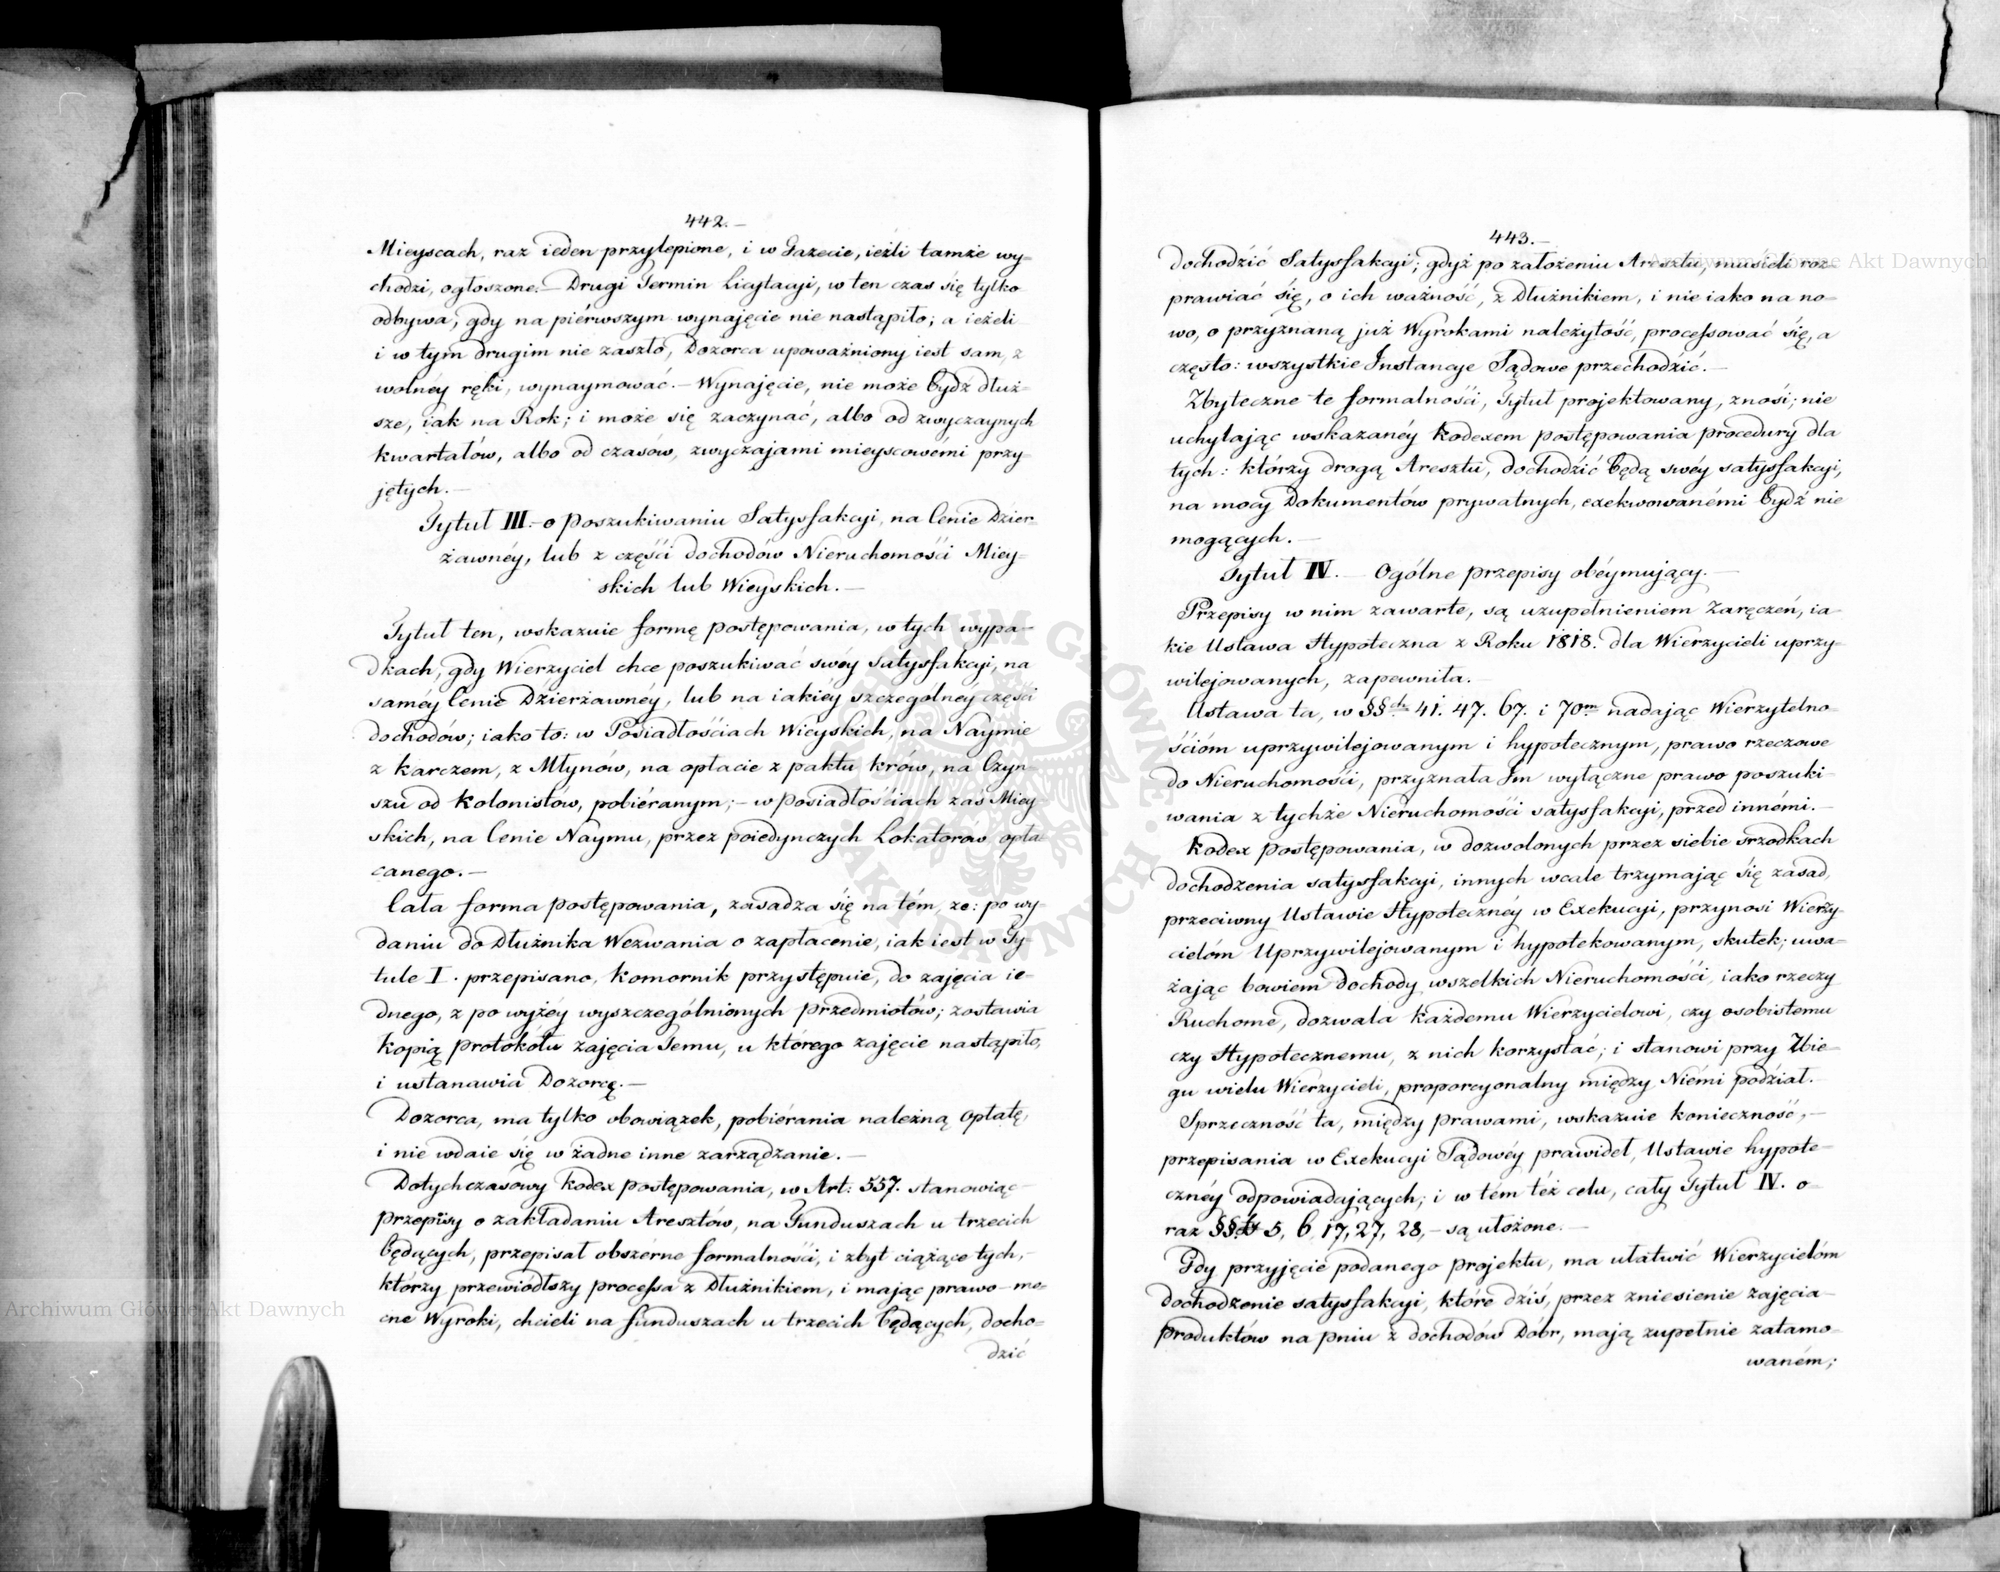 442.–
Mieyscach, raz ieden przylepione, i w Gazecie, ieżli tamże wy-
chodzi, ogłoszone.– Drugi Termin Licytacyi, w ten czas się tylko
odbywa, gdy na piérwszym wynajęcie nie nastąpiło; a ieżeli
i w tym drugim nie zaszło, Dozorca upoważniony iest sam, z
wolnéy ręki, wynaymować.– Wynajęcie, nie może bydź dłuż-
sze, iak na Rok; i może się zaczynać, albo od zwyczaynych
kwartałów, albo od czasów, zwyczajami mieyscowémi przy-
jętych.–
Tytuł III.– o poszukiwaniu Satysfakcyi, na Cenie Dzier-
żawnéy, lub z części dochodów Nieruchomości Miey-
skich lub Wieyskich.–
Tytuł ten, wskazuie formę postępowania, w tych wypa-
dkach, gdy Wierzyciel chce poszukiwać swéy satysfakcyi, na
saméy Cenie Dzierżawnéy, lub na iakiéy szczególnéy części
dochodów; iako to: w Posiadłościach Wieyskich, na Naymie
z karczem, z Młynów, na opłacie z paktu krów, na Czyn-
szu od Kolonistów, pobiéranym;– w Posiadłościach zaś Miey-
skich, na Cenie Naymu, przez poiedynczych Lokatorów opła-
canego.–
Cała forma postępowania, zasadza się na tém, że: po wy-
daniu do Dłużnika Wezwania o zapłacenie, iak iest w Ty-
tule I. przepisano, Komornik przystępuie, do zajęcia ie-
dnego, z po wyżéy wyszczególnionych przedmiotów; zostawia
Kopią protokółu zajęcia Temu, u którego zajęcie nastąpiło,
i ustanawia Dozorcę.–
Dozorca, ma tylko obowiązek, pobiérania należną opłatę,
i nie wdaie się w żadne inne zarządzanie.–
Dotychczasowy Kodex postępowania, w Art: 557. stanowiąc
przepisy o zakładaniu Aresztów, na Funduszach u trzecich
będących, przepisał obszérne formalności, i zbyt ciążące tych,
którzy przewiódłszy processa z Dłużnikiem, i mając prawo-mo-
cne Wyroki, chcieli na funduszach u trzecich będących, docho-
dzić
443.–
dochodzić Satysfakcyi; gdyż po założeniu Aresztu, musieli roz-
prawiać się, o ich ważność, z Dłużnikiem, i nie iako na no-
wo, o przyznaną już Wyrokami należytość, processować się, a
często: wszystkie Instancye Sądowe przechodzić.–
Zbyteczne te formalności, Tytuł projektowany, znosi; nie
uchylając wskazanéy Kodexem postępowania procedury dla
tych: którzy drogą Aresztu, dochodzić będą swéy satysfakcyi,
na mocy Dokumentów prywatnych, exekwowanémi bydź nie
mogących.–
Tytuł IV.– Ogólne przepisy obéymujący.–
Przepisy w nim zawarte, są uzupełnieniem Zaręczeń, ia-
kie Ustawa Hypoteczna z Roku 1818. dla Wierzycieli uprzy-
wilejowanych, zapewniła.–
Ustawa ta, w §§ch 41. 47. 67. i 70m nadając Wierzytelno-
ścióm uprzywilejowanym i hypotecznym, prawo rzeczowe
do Nieruchomości, przyznała Im wyłączne prawo poszuki-
wania z tychże Nieruchomości satysfakcyi, przed innémi.–
Kodex postępowania, w dozwolonych przez siebie srzodkach
dochodzenia satysfakcyi, innych wcale trzymając się zasad,
przeciwny Ustawie Hypotecznéy w Exekucyi, przynosi Wierzy-
cielóm Uprzywilejowanym i hypotekowanym, skutek; uwa-
żając bowiem dochody wszelkich Nieruchomości, iako rzeczy
Ruchome, dozwala każdemu Wierzycielowi, czy osobistemu
czy Hypotecznemu, z nich korzystać; i stanowi przy Zbie-
gu wielu Wierzycieli, proporcyonalny między Niémi podział.–
Sprzeczność ta, między prawami, wskazuie konieczność,–
przepisania w Exekucyi Sądowéy prawideł, Ustawie hypote-
cznéy odpowiadających; i w tém téż celu, cały Tytuł IV. o-
raz §§fy 5, 6, 17, 27, 28,– są ułożone.–
Gdy przyjęcie podanego projektu, ma ułatwić Wierzycielóm
dochodzenie satysfakcyi, które dziś, przez zniesienie zajęcia
produktów na pniu z dochodów Dóbr, mają zupełnie zatamo-
waném;
Archiwum Główne Akt Dawnych
Archiwum Główne Akt Dawnych
ARCHIWUM GŁÓWNE · AKT DAWNYCH ·